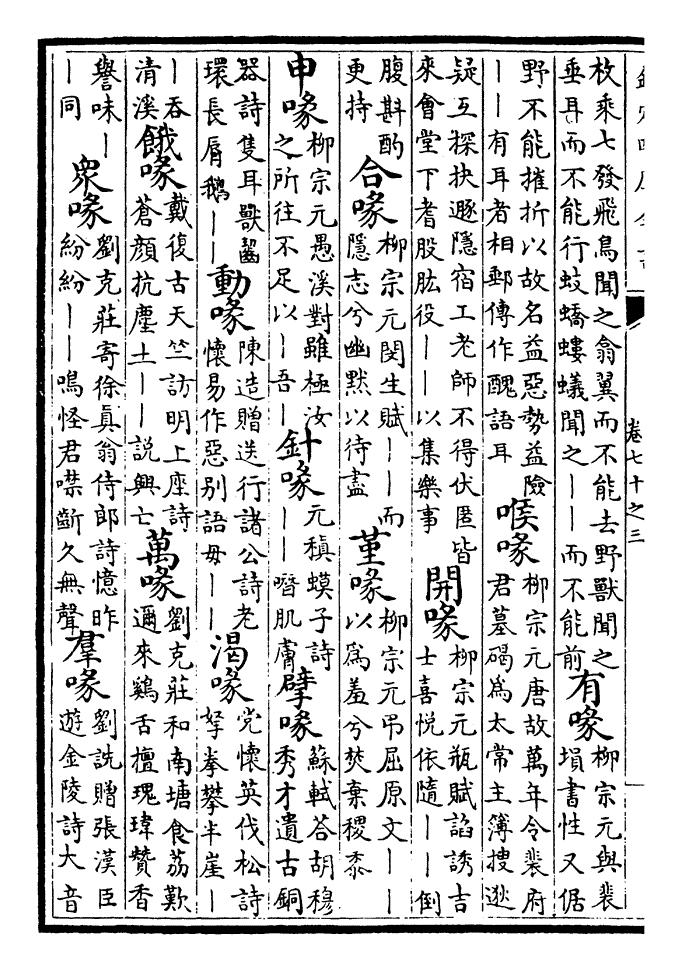 欽定四庫全書
卷七十之三
枚乘七發飛鳥聞之翕翼而不能去野獸聞之
垂耳而不能行蚑蟜螻蟻聞之——而不能前
有喙
柳宗元與裴
塤書性又倨
野不能摧折以故名益惡勢益險
——有耳者相郵傳作醜語耳
喉喙
柳宗元唐故萬年令裴府
君墓碣爲太常主簿搜逖
疑互探抉遯隱宿工老師不得伏匿皆
來會堂下耆股肱役——以集樂事
開喙
柳宗元瓶賦諂誘吉
士喜悅依隨——倒
腹斟酌
更持
合喙
柳宗元閔生賦——而
隱志兮幽默以待盡
堇喙
柳宗元弔屈原文——
以爲羞兮焚棄稷黍
申喙
柳宗元愚溪對雖極汝
之所往不足以—吾—
針喙
元稹蟆子詩
——噆肌膚
擘喙
蘇軾荅胡穆
秀才遺古銅
器詩隻耳獸齧
環長脣鵝——
動喙
陳造贈送行諸公詩老
懷易作惡别語毋——
渴喙
党懷英伐松詩
拏拳攀半崖—
—吞
清溪
餓喙
戴復古天竺訪明上座詩
蒼顏抗塵土——説興亡
萬喙
劉克莊和南塘食荔歎
邇來鷄舌擅瑰瑋贊香
譽味—
—同
衆喙
劉克莊寄徐真翁侍郎詩憶昨
紛紛——鳴怪君噤斷久無聲
羣喙
劉詵贈張漢臣
遊金陵詩大音